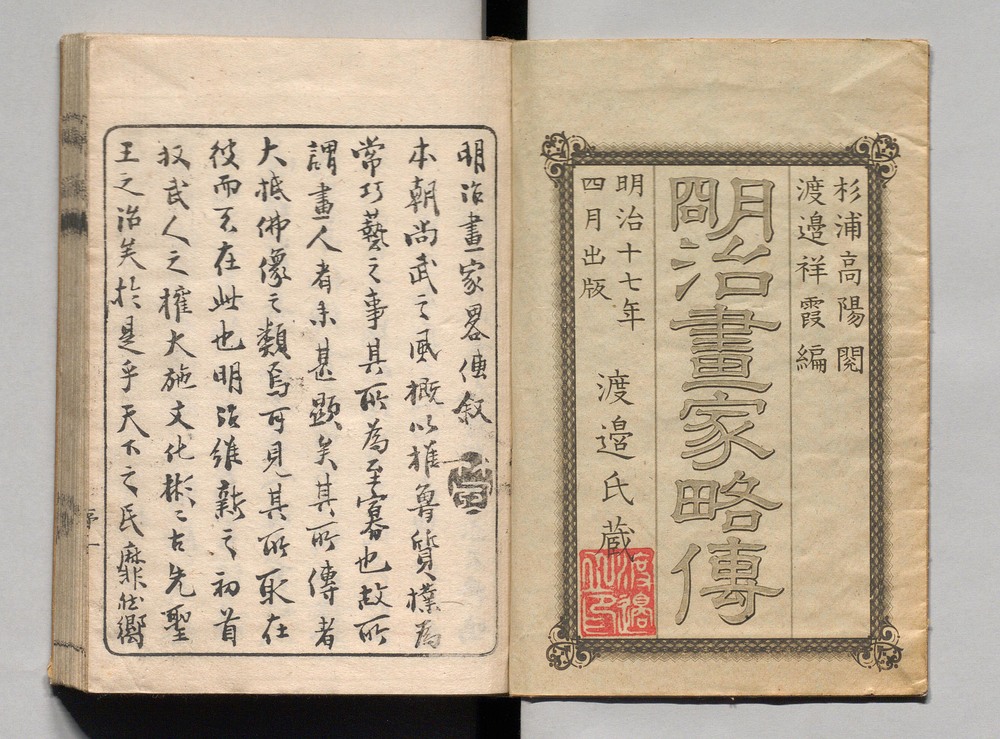 杉浦高陽閱
渡邉祥霞編
明治畫家略傳
明治十七年
四月出版
渡邉氏蔵
渡邉之印
明治畫家畧傳叙
本朝尚武之風概以推魯質樸為
常巧藝之事其所為至寡也故所
謂畫人者未甚顕矣其所傳者
大抵佛像之類焉可見其所取在
彼而不在此也明治維新之初首
収武人之權大施文化彬々古先聖
王之治矣於是乎天下之民靡然嚮
序一